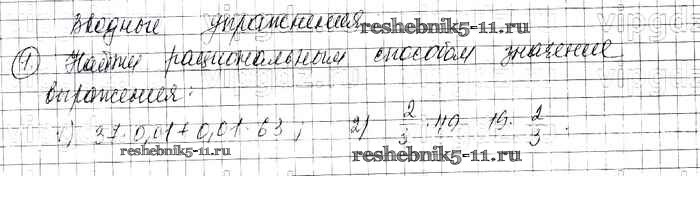 Вводные упражнения
reshebnik5-11.ru
1. Найти рациональным способом значение
выражения:
1) 37·0,01+0,01·63; 2) 2/3·49 19·2/3.
reshebnik5-11.ru
reshebnik5-11.ru